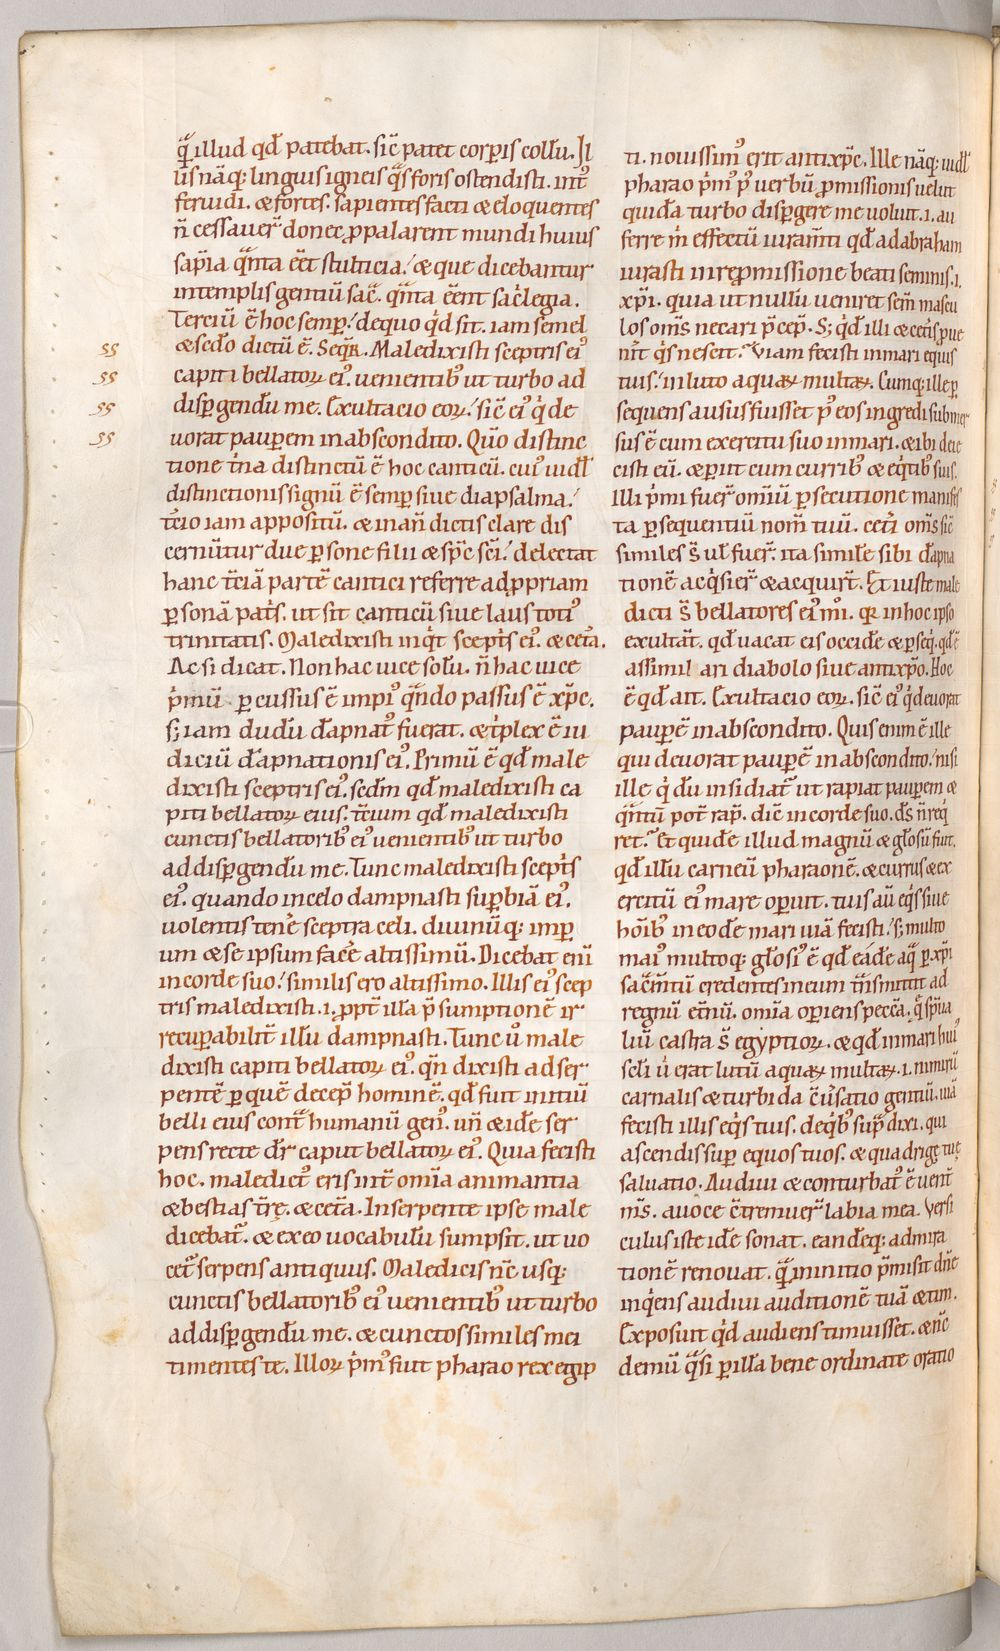 q̄ illud qd̄ patebat. sic̄ patet corporis collū. Il
līs nāq; linguis igneis q̄s foris ostendisti. intꝰ
feruidi. & fortes. sapientes facti & eloquentes
n̄ cessauer̄ donec ꝓpalarent mundi huius
sap̄ia q̄nta eēt stulticia. & que dicebantur
in templis gentiū sac̄. q̄nta eēnt sac̓legia.
Terciū ē hoc semp̱. de quo q̓d sit. iam semel
& sedo dictū ē. Seqr̄. Maledixisti sceptris eiꝰ
capiti bellatoꝝ eiꝰ. uenientibꝰ ut turbo ad
disp̱gendū me. Exultacio eoꝝ. sic̄ eiꝰ q̓ de
uorat pauperem in abscondito. Quo distinc
tione t̄na distinctū ē hoc canticū. cuiꝰ uidl̄
distinctionis signū ē semp̱ siue diapsalma.
t̄cio iam appositū. & in an̄ dictis clare dis
cernūtur due p̱sone filii & sp̄c sc̄i. delectat
hanc t̄ciā partē cantici referre ad ꝓpriam
p̱sonā pat̓s. ut sit canticū siue laus totiꝰ
trinitatis. Maledixisti inq̓t scept̓s eiꝰ. & cet̄a.
Ac si dicat. Non hac uice solū. n̄ hac uice
p̓mū p̱cussus ē impiꝰ q̄ndo passus ē xp̄c.
s; iam dudū dāpnatꝰ fuerat. & t̓plex ē iu
diciū dāpnationis eiꝰ. Primū ē qd̄ male
dixisti sceptris eiꝰ. sedm̄ qd̄ maledixisti ca
piti bellatoꝝ eius. t̄cium qd̄ maledixisti
cunctis bellatoribꝰ eiꝰ uenientibꝰ ut turbo
ad disp̱gendū me. Tunc maledixisti scept̓s
eiꝰ. quando in celo dampnasti sup̱biā eiꝰ.
uolentis tenēe sceptra celi. diuinūq; imp̱i
um & se ipsum facēe altissimū. Dicebat eni
in corde suo. similis ero altissimo. Illis eiꝰ scep
tris maledixisti. i. ꝓpt̄ illā p̄sumptionē ir
recup̱abilit̄ illū dampnasti. Tunc u̓ male
dixisti capiti bellatoꝝ eiꝰ. qn̄ dixisti ad ser
pentē p̱ quē decep̄ hominē. qd̄ fuit initiū
belli eius cont̄ humanū genꝰ. un̄ & idē ser
pens recte dr̄ caput bellatoꝝ eiꝰ. Quia fecisti
hoc. maledictꝰ eris int̄ om̄ia animantia
& bestias t̄rę. & cet̄a. In serpente ipse male
dicebat̄. & ex eo uocabulū sumpsit. ut uo
cet̄ serpens antiquus. Maledicis nc̄ usq;
cunctis bellatoribꝰ eiꝰ uenientibꝰ ut turbo
ad disp̱gendū me. & cunctos similes mei
timentes te. Illoꝝ p̓mꝰ fuit pharao rex egip
ti. nouissimꝰ erit antixp̄c. Ille nāq; uidl̄
pharao p̓mꝰ pꝰ uerbū ꝓmissionis uelut
quidā turbo disp̱gere me uoluit. i. au
ferre m̓ effectū iuram̄ti qd̄ ad abraham
iurasti in reꝓmissione beati seminis. i.
xp̄i. quia ut nullū ueniret sem̄ mascu
los om̄s necari p̄cep̄. S; q̓d illi & cet̓is ꝓue
nit̄ q̓s nescit. Viam fecisti in mari equis
tuis. in luto aquaꝝ multaꝝ. Cumq; ille p̱
sequens ausus fuisset pꝰ eos ingredi submer
sus ē cum exercitu suo in mari. & ibi deie
cisti eū. & periit cum curribꝰ & eq̓tibꝰ suis.
Illi p̓mi fuer̄ om̄iū p̱secutione manifes
ta p̱sequentiū nom̄ tuū. cet̓i om̄s sic̄
similes s̄ ul̄ fuer̄. ita simile sibi dāpna
tionē acq̓sier̄ & acquir̄t. Et iuste male
dicti s̄ bellatores eiꝰ m̓i. qr̄ in hoc ipso
exultāt. qd̄ uacat eis occidē & p̱seq̓. qd̄ ē
assimilari diabolo siue antixp̄o. Hoc
ē qd̄ ait. Exultacio eoꝝ. sic̄ eiꝰ q̓ deuorat
pauperē in abscondito. Quis enim ē ille
qui deuorat pauperē in abscondito. nisi
ille q̓ dū insidiat̄ ut rapiat pauperem &
q̄ntū pot̄ rap̄. dic̄ in corde suo. ds̄ n̄ req̓
ret. Et quidē illud magnū & glosū fuit.
qd̄ illū carneū pharaonē. & currus & ex
ercitū eiꝰ mare operuit. tuis au̓ eq̓s siue
hōibꝰ in eodē mari uiā fecisti. s; multo
maiꝰ multoq; glosiꝰ ē qd̄ eādē aq̄ p̱ xp̄i
sac̄m̄tū credentes in eum t̄nsmittit ad
regnū et̄nū. om̄ia operiens pecc̄a. q̄ sp̄ua
liū castra s̄ egyptioꝝ. & qd̄ in mari huiꝰ
scl̄i u̓ erat lutū aquaꝝ multaꝝ. i. nimirū
carnalis & turbida c̄uersatio gentiū. uiā
fecisti illis eq̓s tuis. de q̓bꝰ sup̱ dixi. qui
ascendis sup̱ equos tuos. & quadrigę tuę
saluatio. Audiui & conturbatꝰ ē uent̄
m̄s. a uoce c̄tremuer̄ labia mea. Versi
culus iste idē sonat. eandēq; admira
tionē renouat. q̄ in initio p̄misit dn̄e
inq̓ens audiui auditionē tuā & tim.
Exposuit q̓d audiens timuisset. & nc̄
demū q̄si p̱ illā bene ordinate oratio